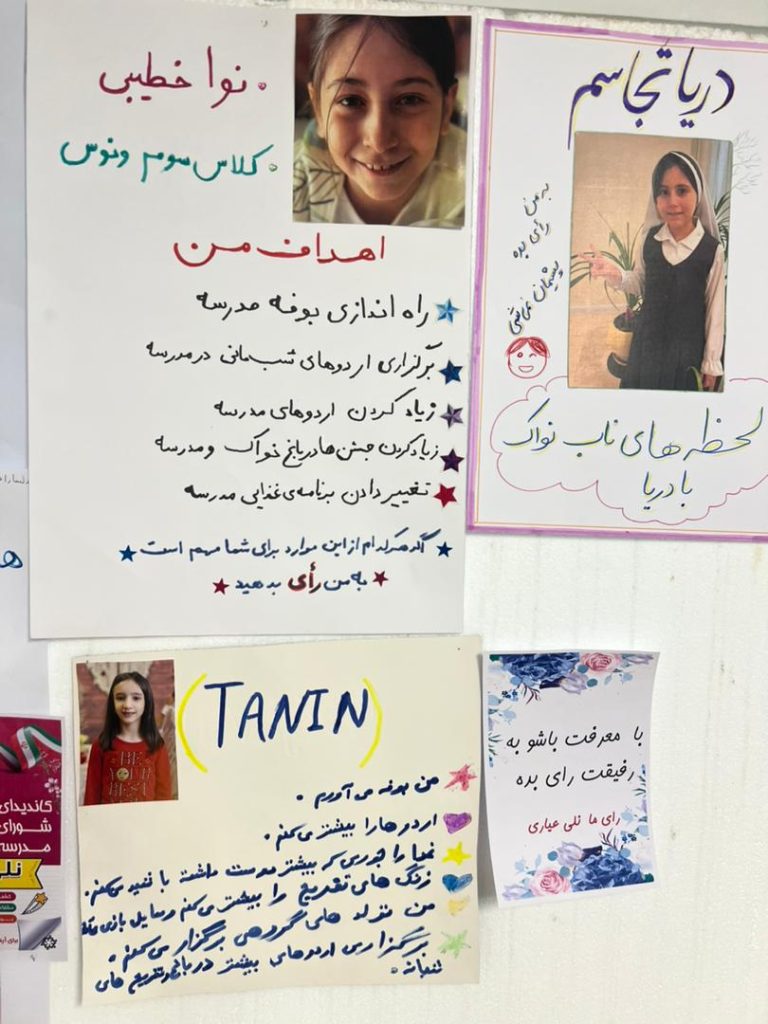 نوا خطیبی
کلاس سوم ونوس
اهداف من
راه اندازی بوفه مدرسه
برگزاری اردوهای شب‌مانی در مدرسه
زیاد کردن اردوهای مدرسه
زیاد کردن جشن ها در باغ خواک و مدرسه
تغییر دادن برنامه‌ی غذایی مدرسه
اگه هرکدام از این موارد برای شما مهم است
به من رأی بدهید
دریا تجاسم
به من
رأی بده
پشیمان نمی‌شی
لحظه های ناب نواک
با دریا
(TANIN)
من بوفه می آورم.
اردوها را بیشتر می‌کنم.
زنگ های تفریح را بیشتر می‌کنم وسایل بازی
من تولد های گروهی برگزار می‌کنم.
برگزاری اردوهای بیشتر در باغ و تفریح های
با معرفت باشو به
رفیقت رای بده
رای ما نلی عیاری
کاندیدای
شورای
مدرسه